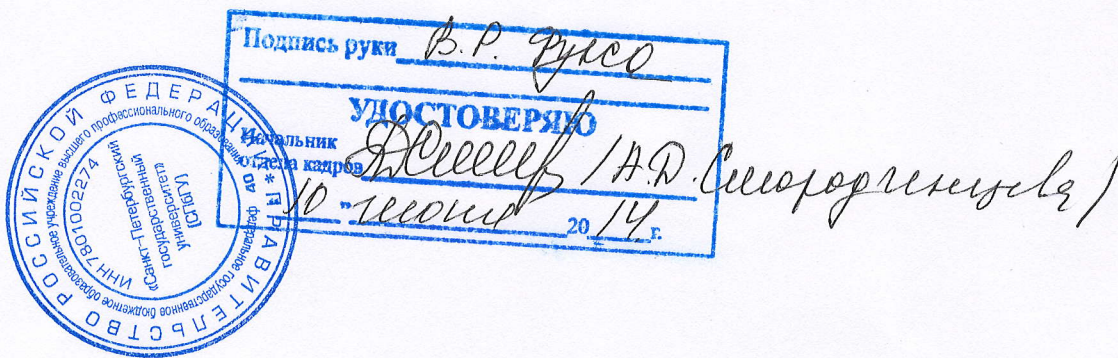 Подпись руки В.Р. Фуксо
УДОСТОВЕРЯЮ
Начальник
отдела кадров /А.Д. Смородинцева/
10 " июня 2014 г.
ПРАВИТЕЛЬСТВО РОССИЙСКОЙ ФЕДЕРАЦИИ *
федеральное государственное бюджетное образовательное учреждение высшего профессионального образования
40
ИНН 7801002274
«Санкт-Петербургский
государственный
университет»
(СПбГУ)